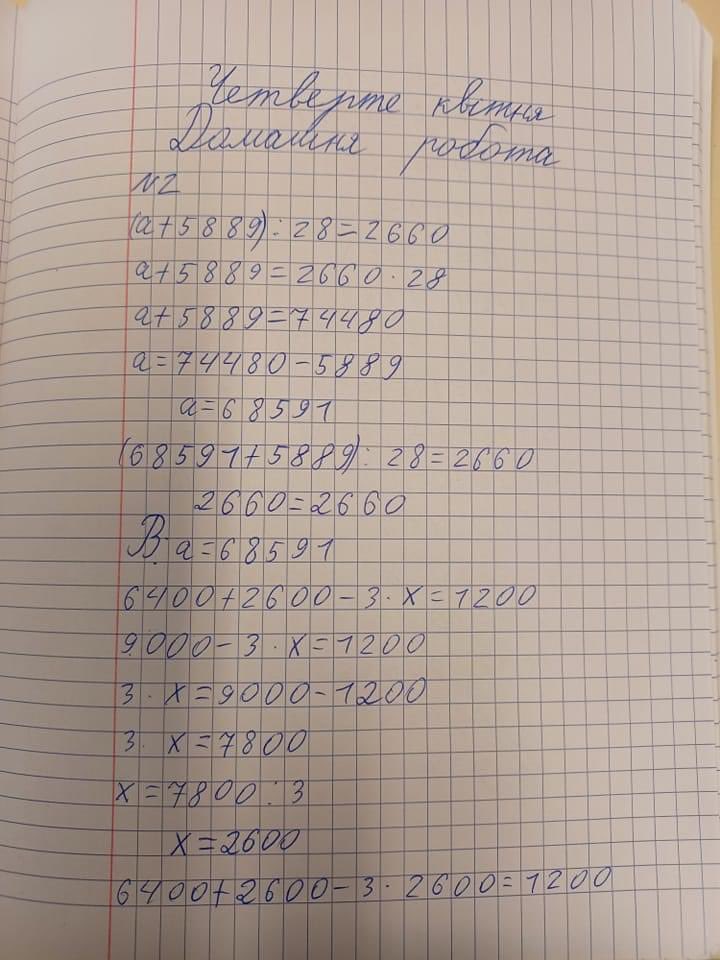 Четверте квітня
Домашня робота
№2
(а+5889):28=2660
а+5889=2660·28
а+5889=74480
а=74480-5889
а=68591
(68591+5889):28=2660
2660=2660
В. а=68591
6400+2600-3·х=1200
9000-3·х=1200
3·х=9000-1200
3·х=7800
х=7800:3
х=2600
6400+2600-3·2600=1200